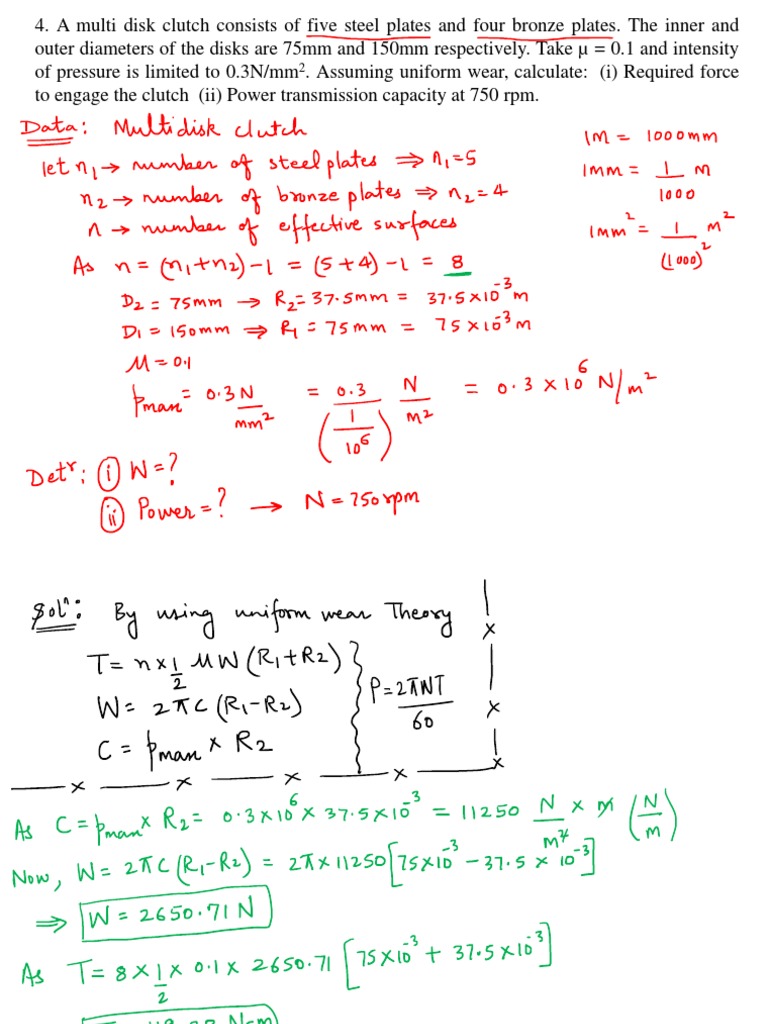 4. A multi disk clutch consists of five steel plates and four bronze plates. The inner and
outer diameters of the disks are 75mm and 150mm respectively. Take μ = 0.1 and intensity
of pressure is limited to 0.3N/mm². Assuming uniform wear, calculate: (i) Required force
to engage the clutch (ii) Power transmission capacity at 750 rpm.
Data: Multidisk clutch
let n₁ → number of steel plates ⇒ n₁ = 5
n₂ → number of bronze plates ⇒ n₂ = 4
n → number of effective surfaces
As n = (n₁+n₂)-1 = (5+4)-1 = 8
D₂ = 75mm → R₂ = 37.5mm = 37.5×10⁻³ m
D₁ = 150mm ⇒ R₁ = 75mm = 75×10⁻³ m
μ = 0.1
pman = 0.3 N/mm² = 0.3/(1/10⁶) N/m² = 0.3×10⁶ N/m²
1M = 1000mm
1mm = 1/1000 m
1mm² = 1/(1000)² m²
Detr: (i) W = ?
(ii) Power = ? → N = 750rpm
Solⁿ: By using uniform wear Theory
T = n×1/2 μW(R₁+R₂)
W = 2πC(R₁-R₂)
C = pman × R₂
P = 2πNT/60
As C = pman × R₂ = 0.3×10⁶ × 37.5×10⁻³ = 11250 N/m² × m (N/m)
Now, W = 2πC(R₁-R₂) = 2π×11250[75×10⁻³ - 37.5×10⁻³]
⇒ W = 2650.71 N
As T = 8×1/2×0.1×2650.71[75×10⁻³ + 37.5×10⁻³]